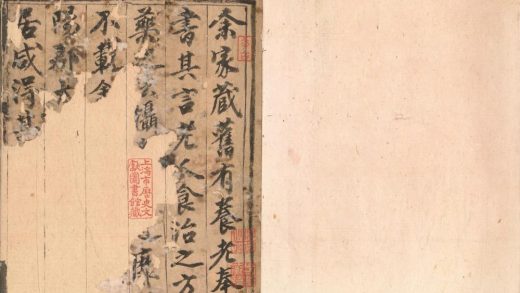 余家藏舊有養老奉
書其言老人食治之方
藥 攝
不載
陽郡
居咸得其
上海市歷史文
獻圖書館藏